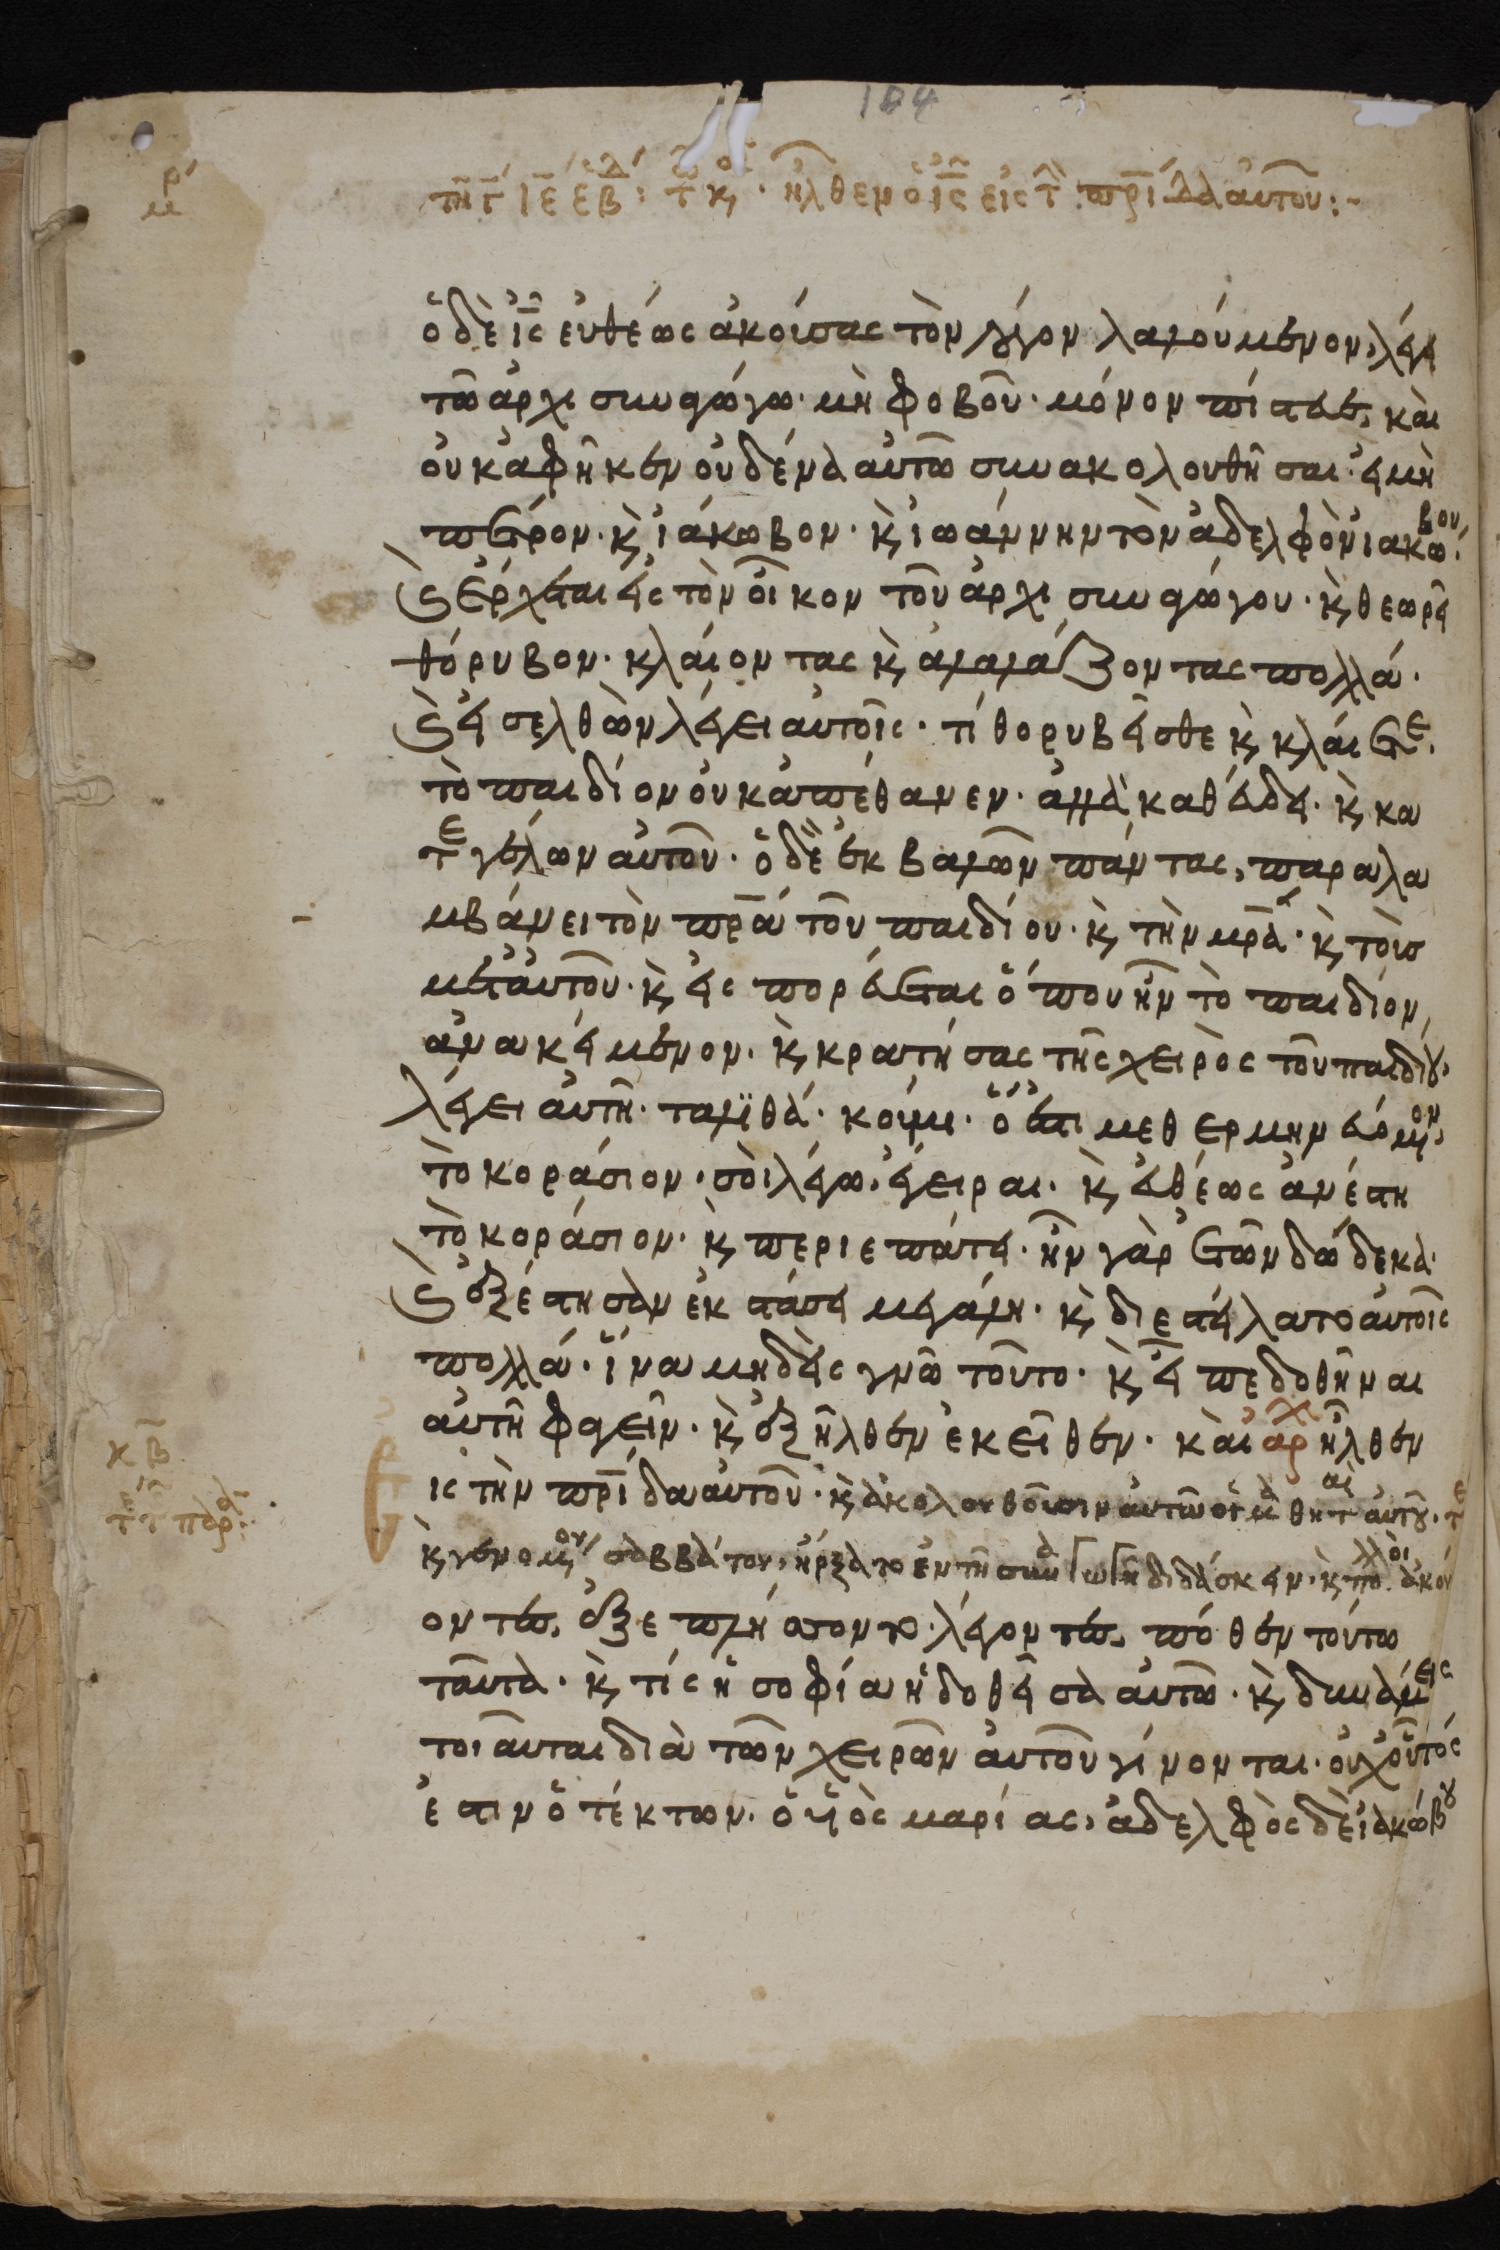 104
τῇ γ ιε ἑβ: τ κ, ἦλθεν ὁ ις εἰς τ πρίδα αὐτοῦ:~
ὁ δὲ ις εὐθέως ἀκούσας τὸν λόγον λαλούμενον, λέγει
τῶ ἀρχισυναγώγω· μὴ φοβοῦ· μόνον πίστευε, καὶ
οὐκ ἀφῆκεν οὐδένα αὐτῶ συνακολουθῆσαι· εἰ μὴ
πέτρον· κ, ἰάκωβον· κ, ἰωάννην τὸν ἀδελφὸν ἰακώβου,
κ, ἔρχεται εἰς τὸν οἶκον τοῦ ἀρχισυναγώγου· κ, θεωρεῖ
θόρυβον· κλαίοντας κ, ἀλαλάζοντας πολλά·
κ, εἰσελθὼν λέγει αὐτοῖς· τί θορυβεῖσθε κ, κλαίετε.
τὸ παιδίον οὐκ ἀπέθανεν· ἀλλὰ καθεύδει· κ, κα
τεγέλων αὐτοῦ· ὁ δὲ ἐκβαλὼν πάντας, παραλα
μβάνει τὸν πρα τοῦ παιδίου· κ, τὴν μρα· κ, τοὺσ
μετ αὐτοῦ· κ, εἰσπορεύεται ὅπου ἦν τὸ παιδίον,
ἀνακείμενον· κ, κρατήσας τῆς χειρὸς τοῦ παιδίου,
λέγει αὐτῆ· ταλιθά· κούμι· ὅ ἐστι μεθερμηνευόμενον,
τὸ κοράσιον· σοὶ λέγω, ἔγειραι· κ, εὐθέως ἀνέστη
τὸ κοράσιον· κ, περιεπάτει· ἦν γὰρ ἐτῶν δώδεκα·
κ, ἐξέστησαν ἐκστάσει μεγάλη· κ, διεστείλατο αὐτοῖς
πολλά· ἵνα μηδεὶς γνῶ τοῦτο· κ, εἶπε δοθῆναι
αὐτῆ φαγεῖν· κ, ἐξῆλθεν ἐκεῖθεν· καὶ ἀρχ ἦλθεν
εἰς τὴν πρίδα αὐτοῦ· κ, ἀκολουθοῦσιν αὐτῶ οἱ μαθηταὶ αὐτοῦ·
κ, γενομένου σαββάτου, ἤρξατο ἐν τῆ συναγωγῆ διδάσκειν· κ, πολλοὶ ἀκού
οντες, ἐξεπλήσσοντο· λέγοντες, πόθεν τούτω
ταῦτα· κ, τίς ἡ σοφία ἡ δοθεῖσα αὐτῶ· κ, δυνάμεις
τοιαῦται διὰ τῶν χειρῶν αὐτοῦ γίνονται· οὐχ οὗτός
ἐστιν ὁ τέκτων· ὁ υἱὸς μαρίας, ἀδελφὸς δὲ ἰακώβου